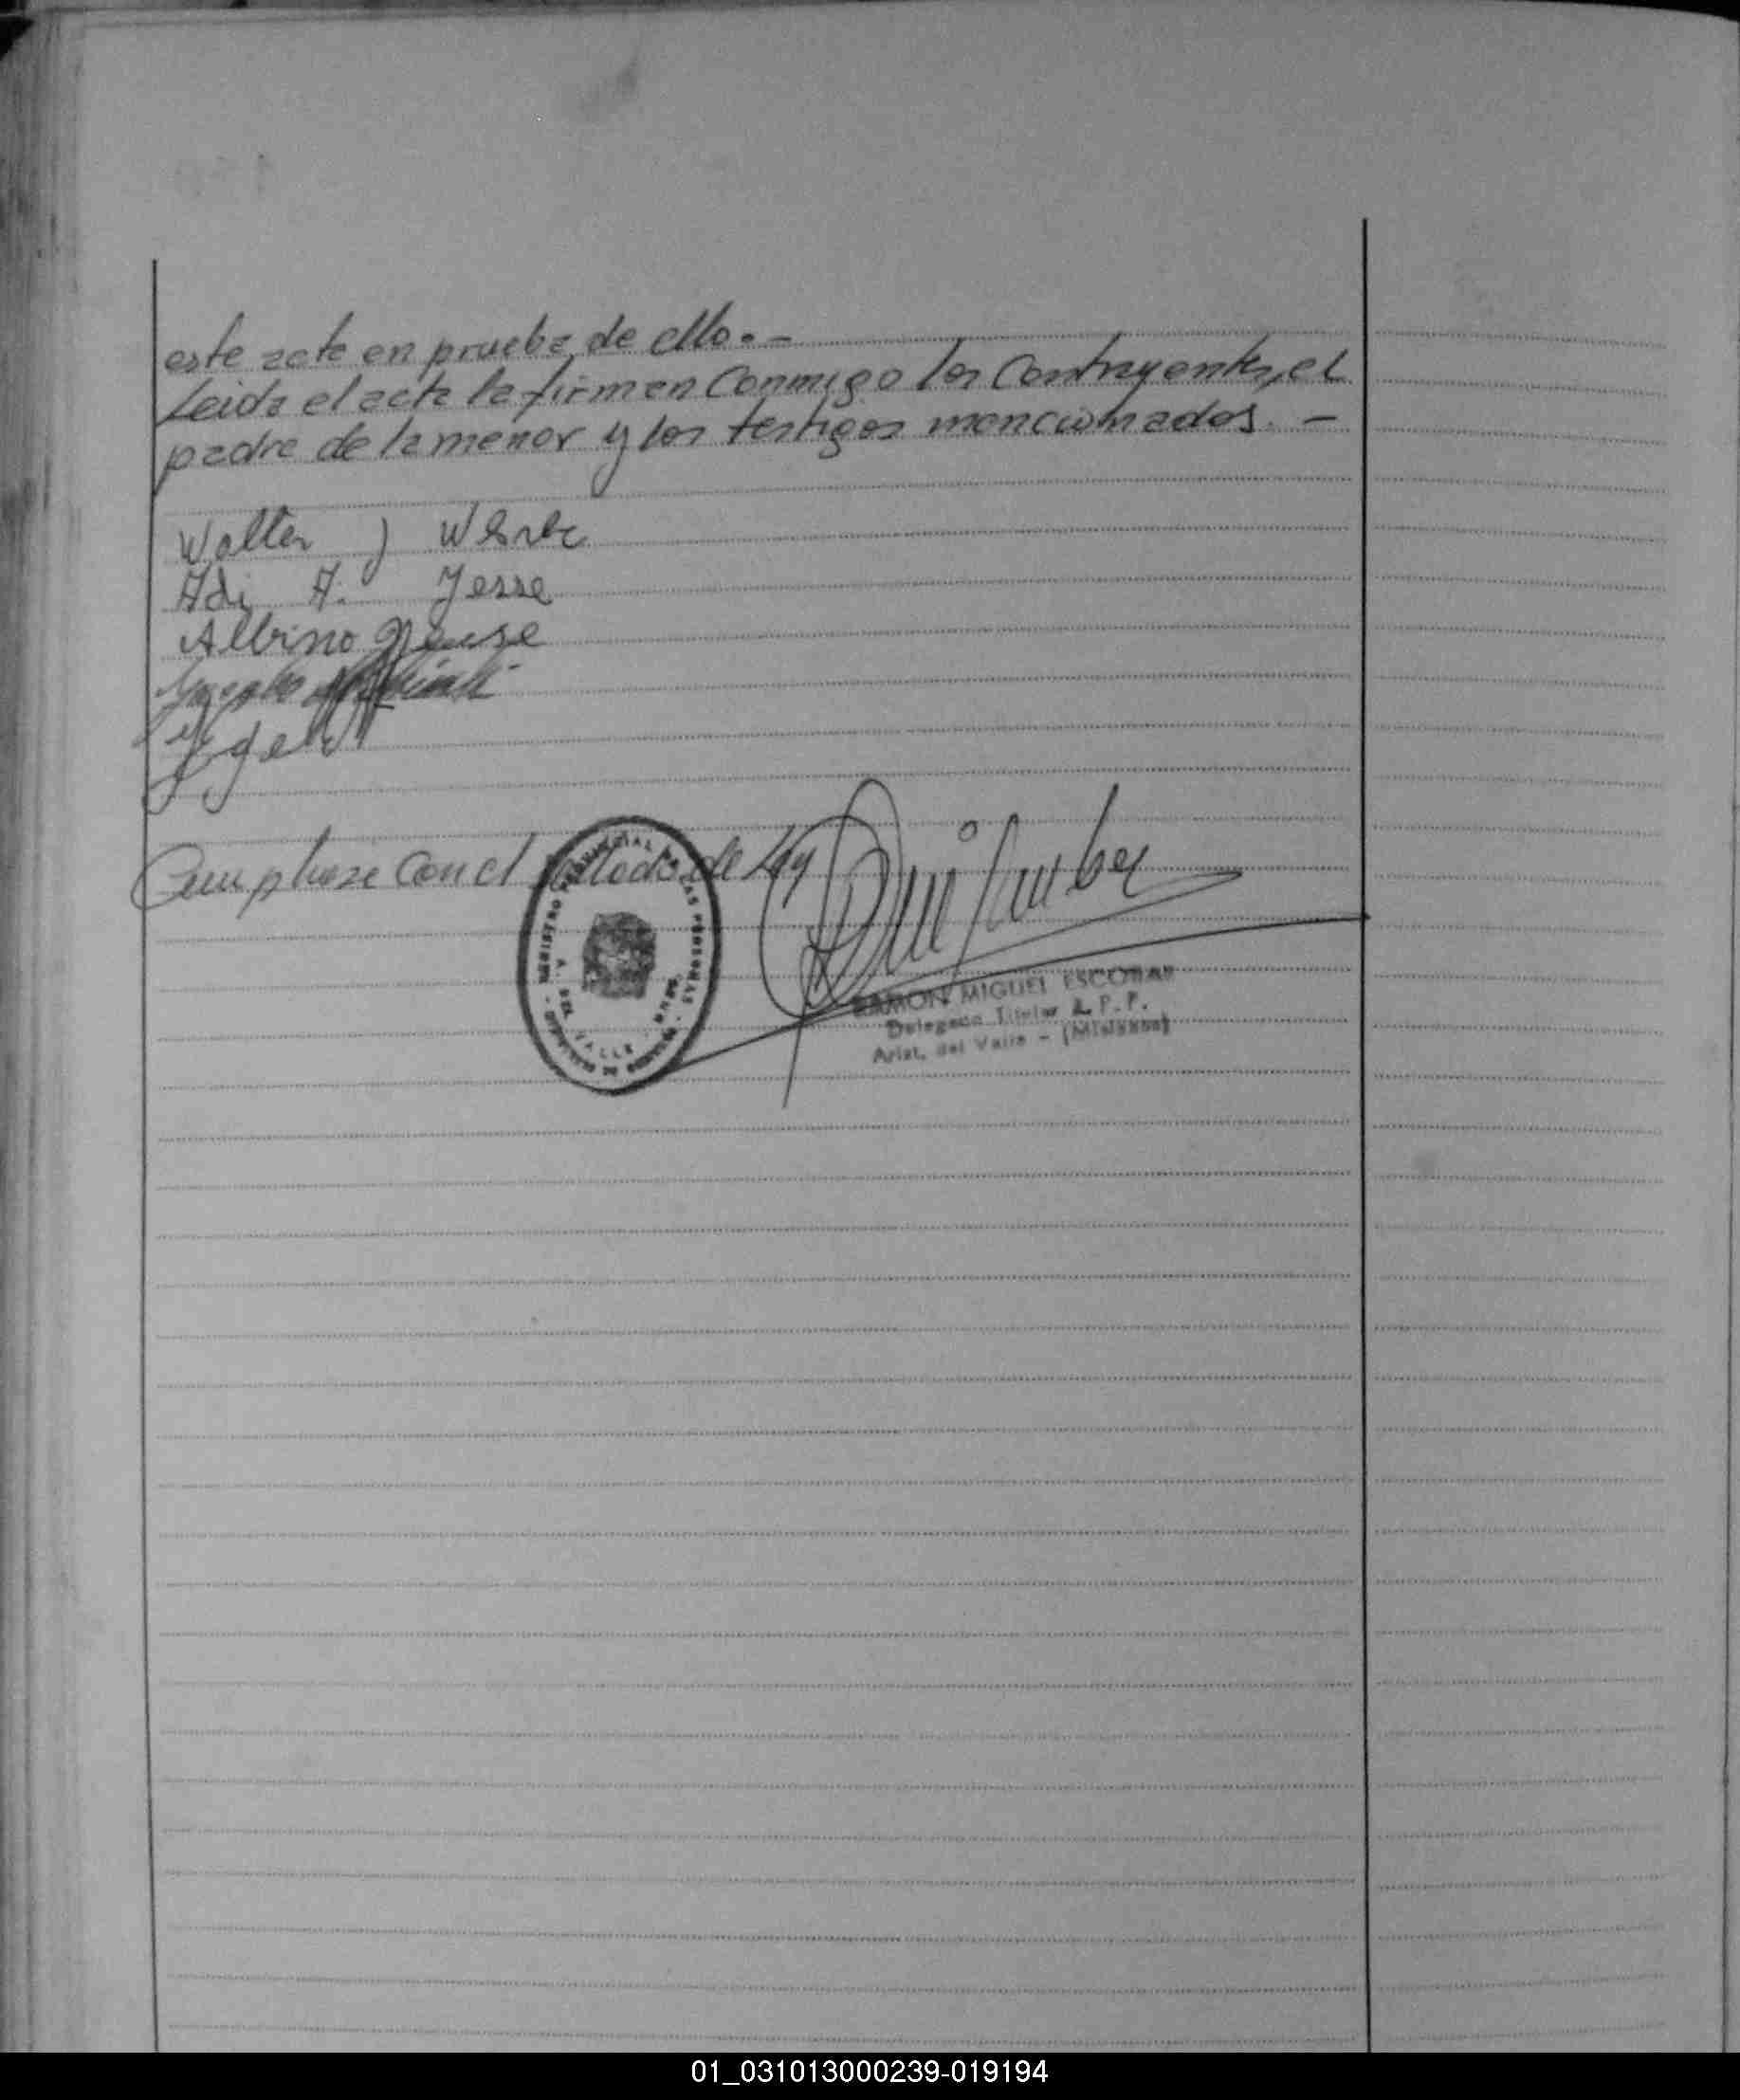 este acta en prueba de ello. -
Leida el acta la firman Conmigo los Contrayentes, el
padre de la menor y los testigos mencionados. -
Walter J
Adi A. Jesse
Albino
Cumplase con el de Ley
REGISTRO PROVINCIAL DE LAS PERSONAS
A. DEL VALLE
RAMON MIGUEL ESCOBAR
Delegado Titular R. P. P.
Arist. del Valle - (Misiones)
01_031013000239-019194